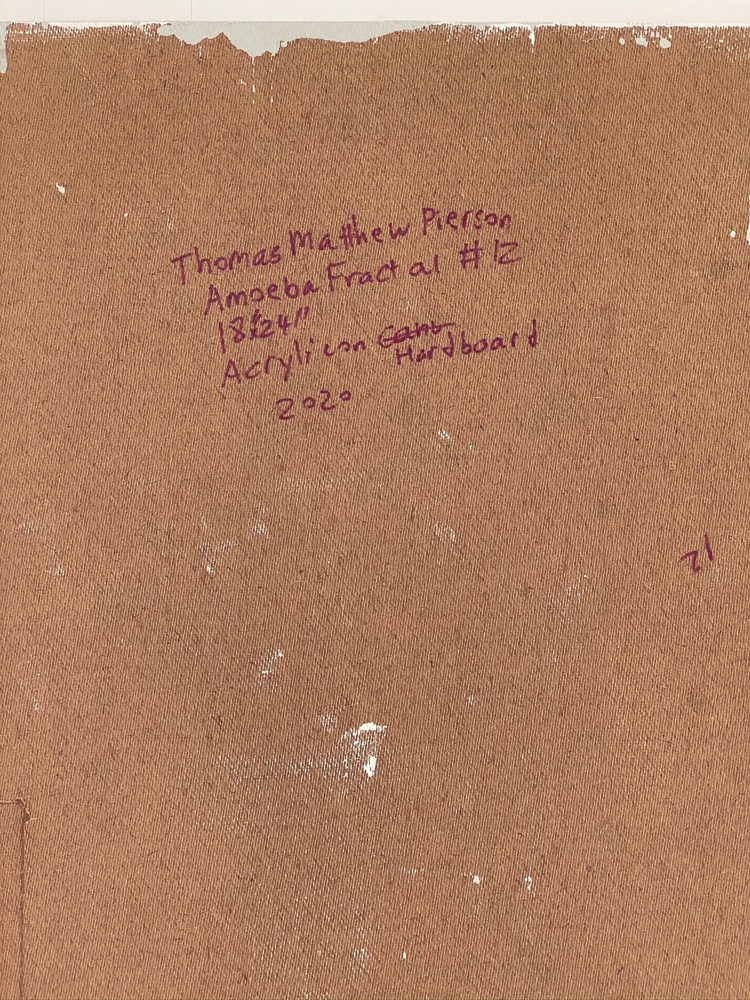 Thomas Matthew Pierson
Amoeba Fractal #12
18"x24"
Acrylic on Hardboard
2020
21